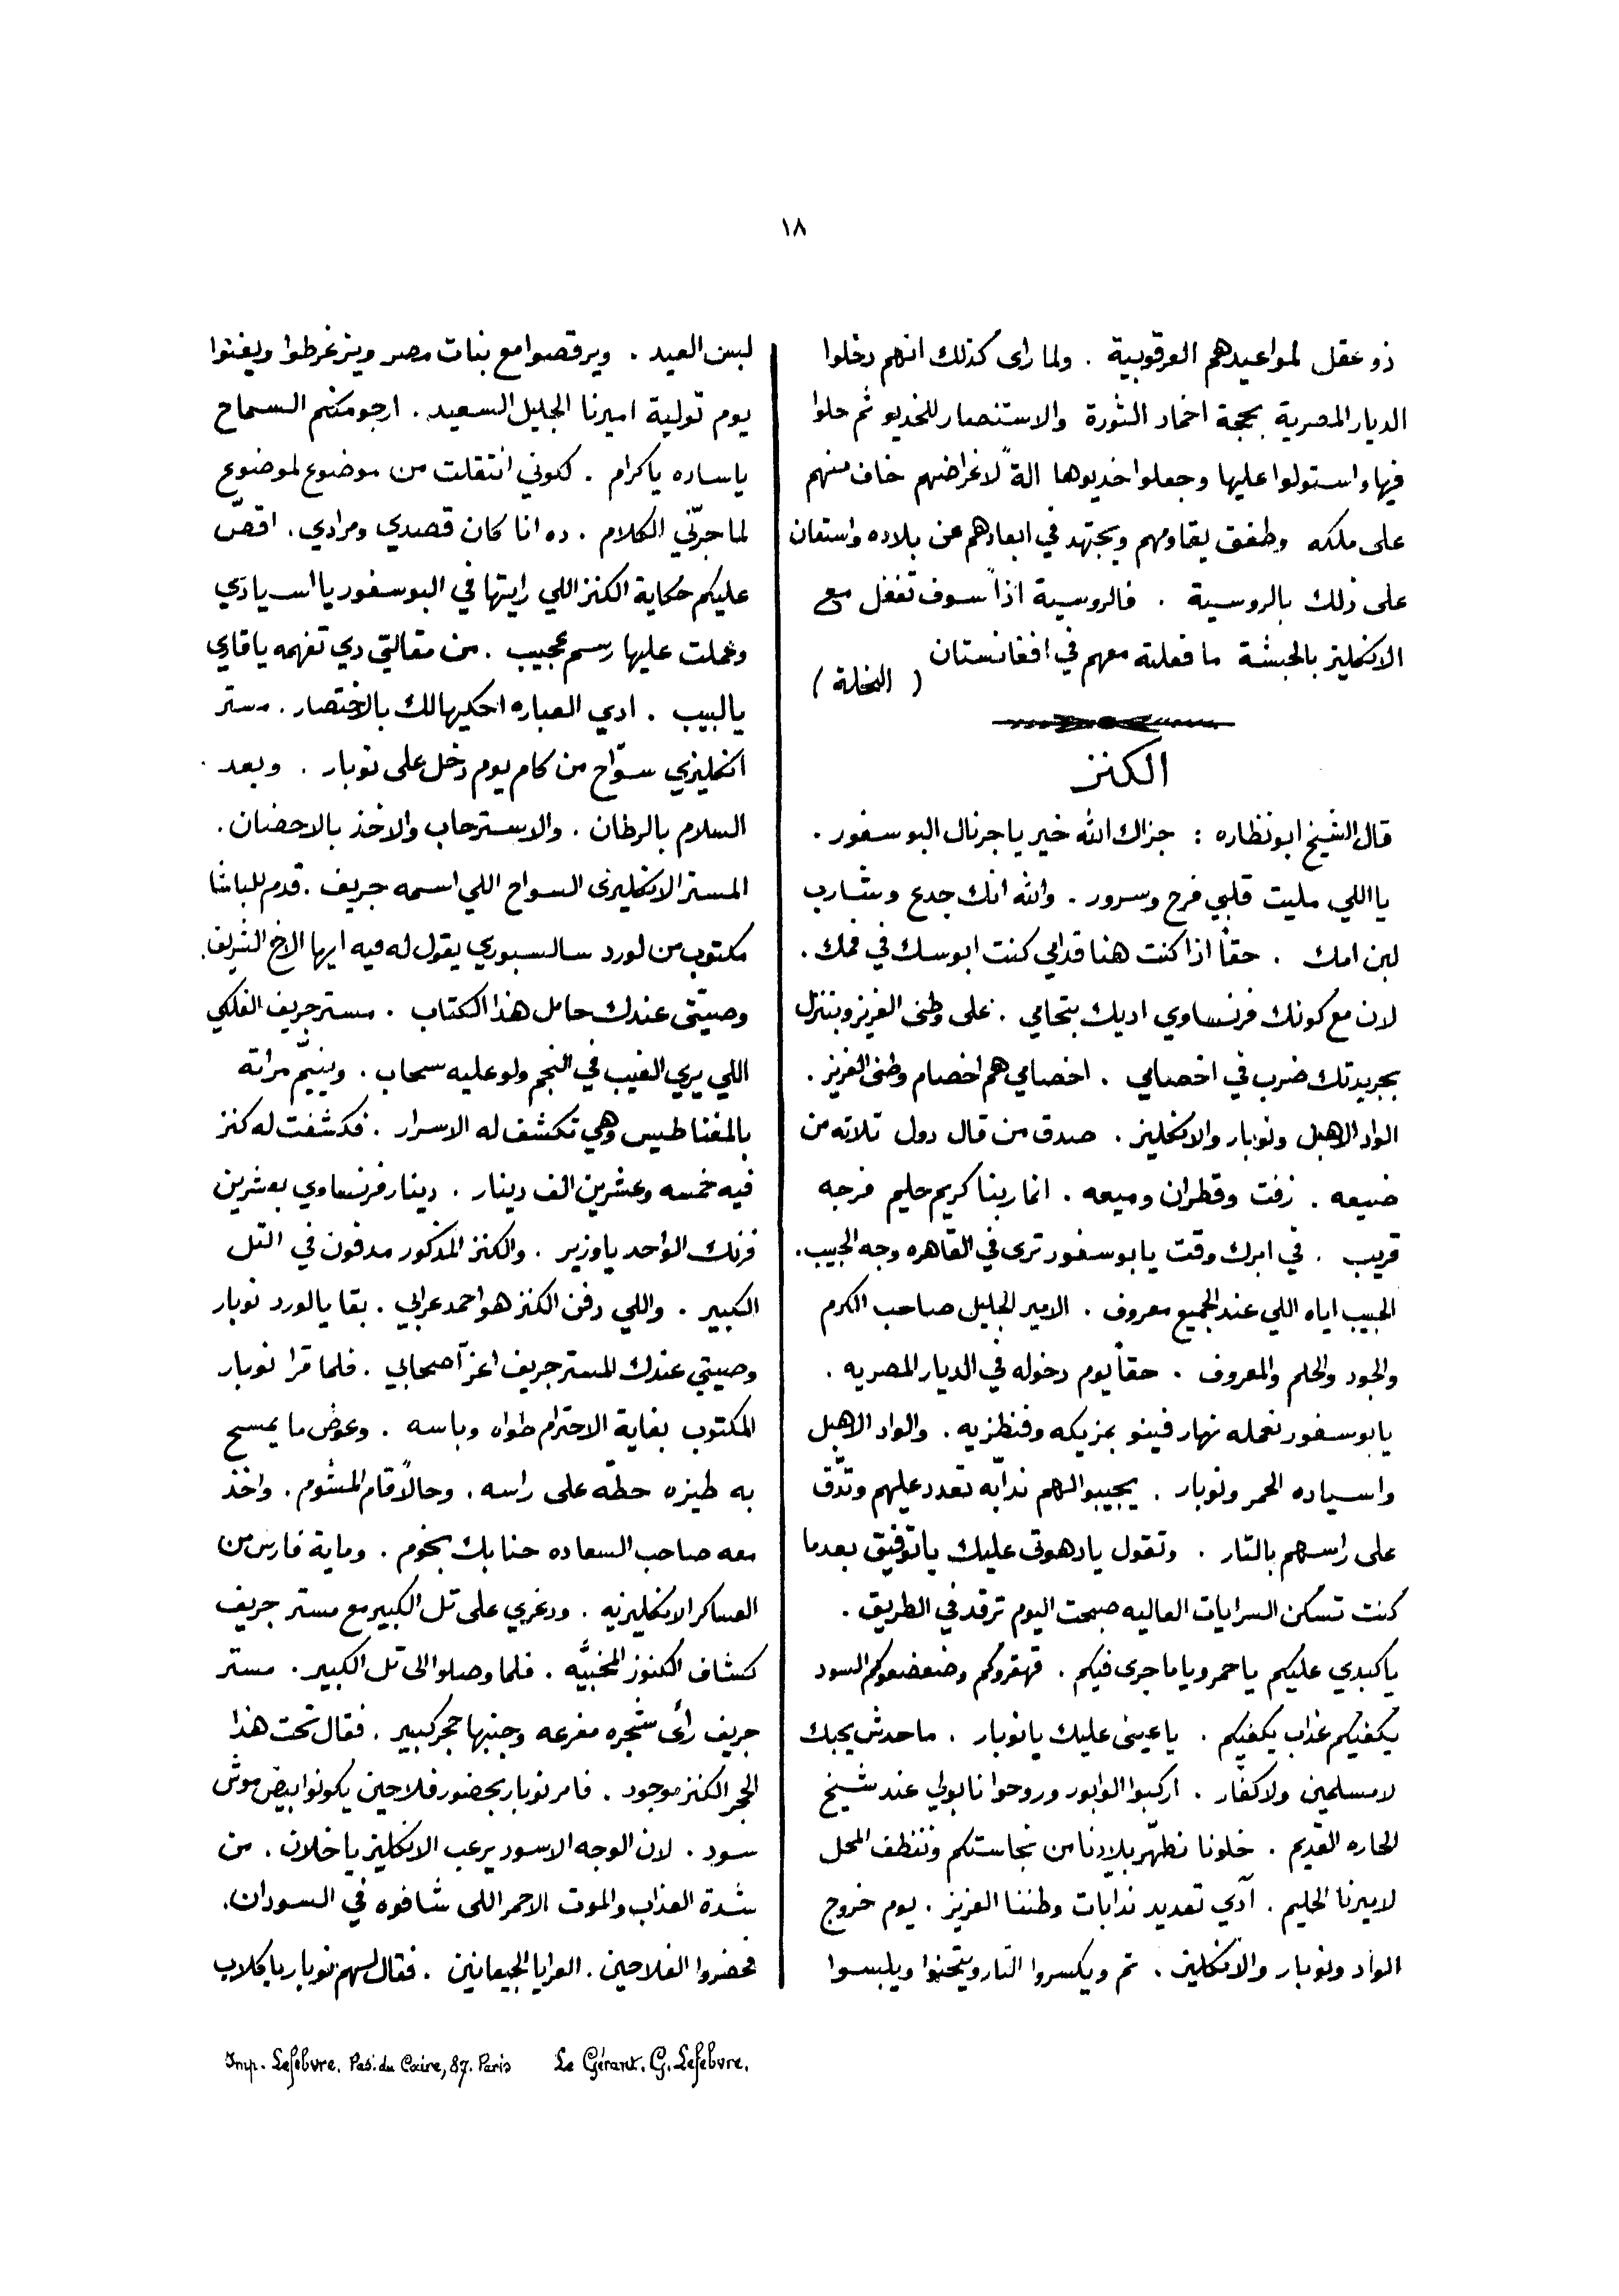 ١٨
ذو عقل لمواعيدهم العرقوبية . ولما رای كذلك انهم دخلوا
الديار المصرية بحجة اخماد الثورة والاستنصار للخديو ثم حلوا
فيها واستولوا عليها وجعلوا خديوها الةً لاغراضهم خاف منهم
على ملكه وطفق يقاومهم ويجتهد في ابعادهم عن بلاده واستعان
على ذلك بالروسية . فالروسية اذاً سوف تفعل مع
الانكليز بالحبشة ما فعلته معهم في افغانستان
( النحلة )
الكنز
قال الشيخ ابو نظاره : جزاك الله خير يا جرنال البوسفور .
يا اللي مليت قلبي فرح وسرور . والله انك جدع وشارب
لبن امك . حقاً اذا كنت هنا قدامي كنت ابوسك في فمك .
لان مع كونك فرنساوي اديك بتحامي . على وطني العزيز وبتنزل
بجريدتك ضرب في اخصامي . اخصامي هم اخصام وطني العزيز .
الواد الاهبل ونوبار والانكليز . صدق من قال دول تلاته من
ضيعه . زفت وقطران وميعه . انما ربنا كريم حليم فرجه
قريب . في ابرك وقت يا بوسفور ترى في القاهره وجه الحبيب .
الحبيب اياه اللي عند الجميع معروف . الامير الجليل صاحب الكرم
والجود والحلم والمعروف . حقاً يوم دخوله في الديار المصريه .
يا بوسفور نعمله نهار فينو بمزيكه وفنطزيه . والواد الاهبل
واسياده الحمر ونوبار . يجيبوا لهم ندابّه تعدد عليهم وتدّق
على راسهم بالتار . وتقول يا دهوتي عليك يا توفيق بعدما
كنت تسكن السرايات العاليه صبحت اليوم ترقد في الطريق .
يا كبدي عليكم يا حمر ويا ما جرى فيكم . قهقروكم وضعضعوكم السود
يكفيكم عذاب يكفيكم . يا عيني عليك يا نوبار . ما حدش يحبك
لا مسلمين ولا كفّار . اركبوا الوابور وروحوا نابولي عند شيخ
الحاره القديم . خلونا نطهّر بلادنا من نجاستكم وننظف المحل
لاميرنا الحليم . آدي تعديد ندابات وطننا العزيز . يوم خروج
الواد ونوبار والانكليز . تم ويكسروا التار ويتحنوا ويلبسوا
لبس العيد . ويرقصوا مع بنات مصر ويزغرطوا ويغنوا
يوم تولية اميرنا الجليل السعيد . ارجو منكم السماح
يا ساده يا كرام . لكوني انتقلت من موضوع لموضوع
لما جرّني الكلام . ده انا كان قصدي ومرادي . اقصّ
عليكم حكاية الكنز اللي رايتها في البوسفور يا اسيادي
وعملت عليها رسم عجيب . من مقالتي دي تفهمه يا قاري
يا لبيب . ادي العباره احكيها لك بالاختصار . مستر
انكليزي سوّاح من كام يوم دخل على نوبار . وبعد
السلام بالرطان . والاسترحاب والاخذ بالاحضان .
المستر الانكليزى السواح اللي اسمه جريف . قدم للباشا
مكتوب من لورد سالسبوري يقول له فيه ايها الاخ الشريف .
وصيّتي عندك حامل هذا الكتاب . مستر جريف الفلكي
اللي يري الغيب في النجم ولو عليه سحاب . وينيّم مراته
بالمغناطيس وهي تكشف له الاسرار . فكشفت له كنز
فيه خمسه وعشرين الف دينار . دينار فرنساوي بعشرين
فرنك الواحد يا وزير . والكنز المذكور مدفون في التل
الكبير . واللي دفن الكنز هو احمد عرابي . بقا يا لورد نوبار
وصيتي عندك للمستر جريف اعزّ اصحابي . فلما قرا نوبار
المكتوب بغاية الاحترام طواه وباسه . وعوض ما يمسح
به طيزه حطّه على راسه . وحالاً قام المشوم . واخذ
معه صاحب السعاده حنا بك بخوم . وماية فارس من
العساكر الانكليزيه . ودغري على تل الكبير مع مستر جريف
كشاف الكنوز المخبيّه . فلما وصلوا الى تل الكبير . مستر
جريف رأى شجره مفرعه وجنبها حجر كبير . فقال تحت هذا
الحجر الكنز موجود . فامر نوبار بحضور فلاحين يكونوا بيض موش
سود . لان الوجه الاسود يرعب الانكليز يا خلان . من
شدة العذاب والموت الاحمر اللى شافوه في السودان .
فحضروا الفلاحين . العرايا الجيعانين . فقال لهم نوبار يا كلاب
Imp. Lefebvre. Pas. du Caire, 87. Paris Le Gérant. G. Lefebvre.